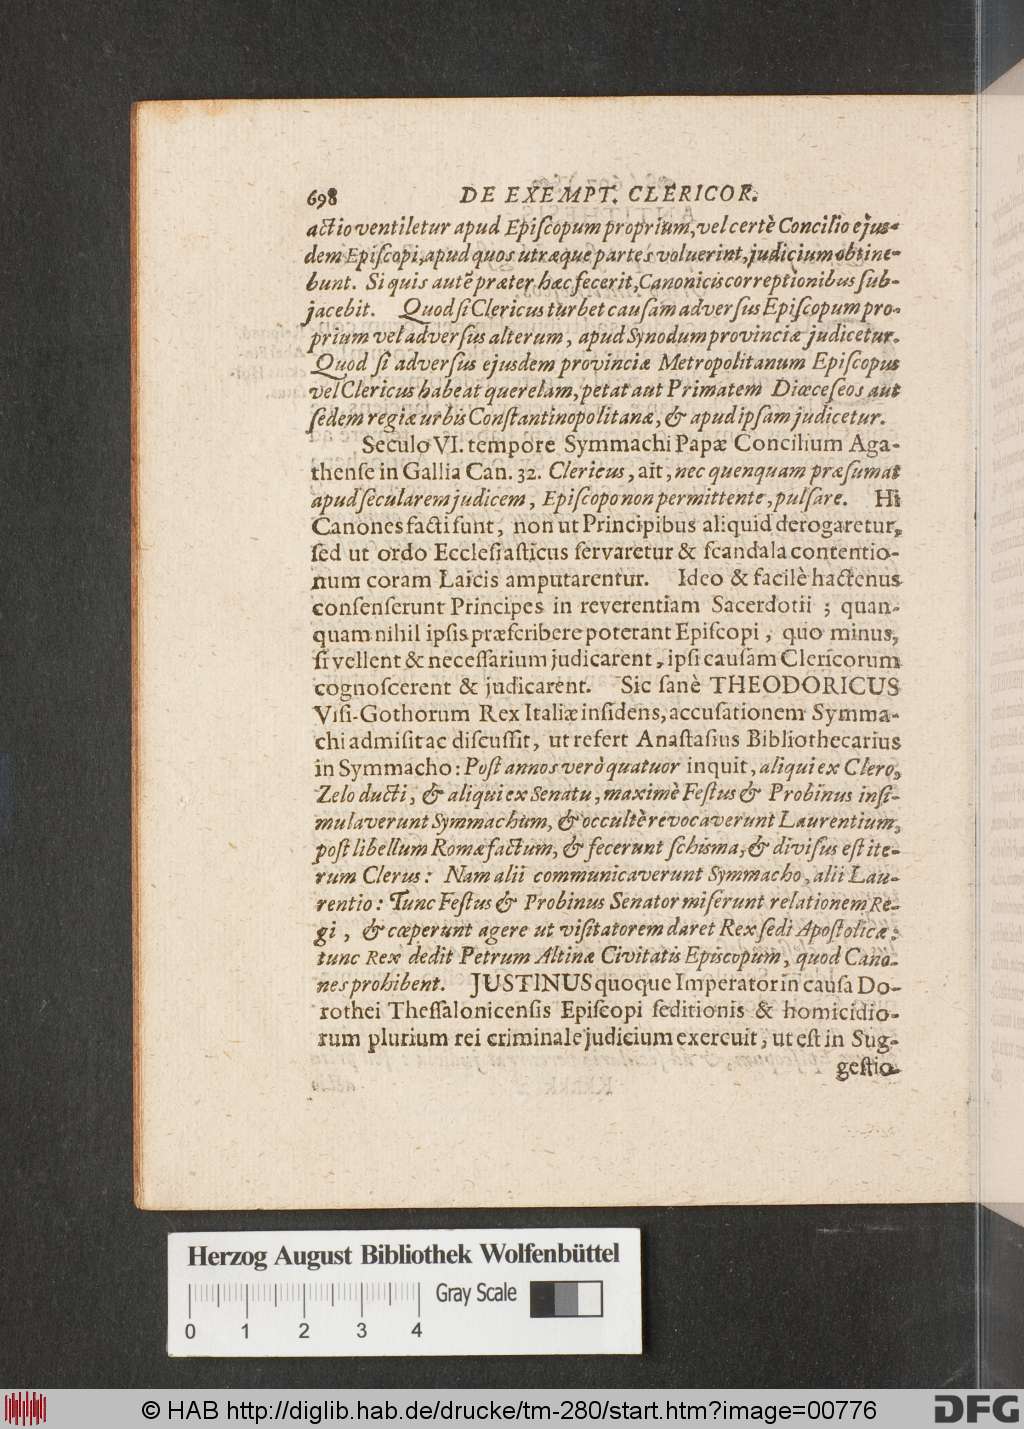 698 DE EXEMPT. CLERICOR.
actio ventiletur apud Epiſcopum proprium, vel certè Concilio ejus-
dem Epiſcopi, apud quos utræque partes voluerint, judicium obtine-
bunt. Si quis autẽ præter hæc fecerit, Canonicis correptionibus ſub-
jacebit. Quod ſi Clericus turbet cauſam adverſus Epiſcopum pro-
prium vel adverſus alterum, apud Synodum provinciæ judicetur.
Quod ſi adverſus ejusdem provinciæ Metropolitanum Epiſcopus
vel Clericus habeat querelam, petat aut Primatem Diœceſeos aut
ſedem regiæ urbis Conſtantinopolitanæ, & apud ipſam judicetur.
Seculo VI. tempore Symmachi Papæ Concilium Aga-
thenſe in Gallia Can. 32. Clericus, ait, nec quenquam præſumat
apud ſecularem judicem, Epiſcopo non permittente, pulſare. Hi
Canones facti ſunt, non ut Principibus aliquid derogaretur,
ſed ut ordo Eccleſiaſticus ſervaretur & ſcandala contentio-
num coram Laicis amputarentur. Ideo & facilè hactenus
conſenſerunt Principes in reverentiam Sacerdotii ; quan-
quam nihil ipſis præſcribere poterant Epiſcopi, quo minus,
ſi vellent & neceſſarium judicarent, ipſi cauſam Clericorum
cognoſcerent & judicarent. Sic ſanè THEODORICUS
Viſi-Gothorum Rex Italiæ inſidens, accuſationem Symma-
chi admiſit ac diſcuſſit, ut refert Anaſtaſius Bibliothecarius
in Symmacho: Poſt annos verò quatuor inquit, aliqui ex Clero,
Zelo ducti, & aliqui ex Senatu, maximè Feſtus & Probinus inſi-
mulaverunt Symmachum, & occultè revocaverunt Laurentium,
poſt libellum Romæ factum, & fecerunt ſchisma, & diviſus eſt ite-
rum Clerus: Nam alii communicaverunt Symmacho, alii Lau-
rentio: Tunc Feſtus & Probinus Senator miſerunt relationem Re-
gi, & cœperunt agere ut viſitatorem daret Rex ſedi Apoſtolicæ:
tunc Rex dedit Petrum Altinæ Civitatis Episcopum, quod Cano-
nes prohibent. JUSTINUS quoque Imperator in cauſa Do-
rothei Theſſalonicenſis Epiſcopi ſeditionis & homicidio-
rum plurium rei criminale judicium exercuit, ut eſt in Sug-
geſtio-
Herzog August Bibliothek Wolfenbüttel
Gray Scale
0 1 2 3 4
© HAB http://diglib.hab.de/drucke/tm-280/start.htm?image=00776
DFG